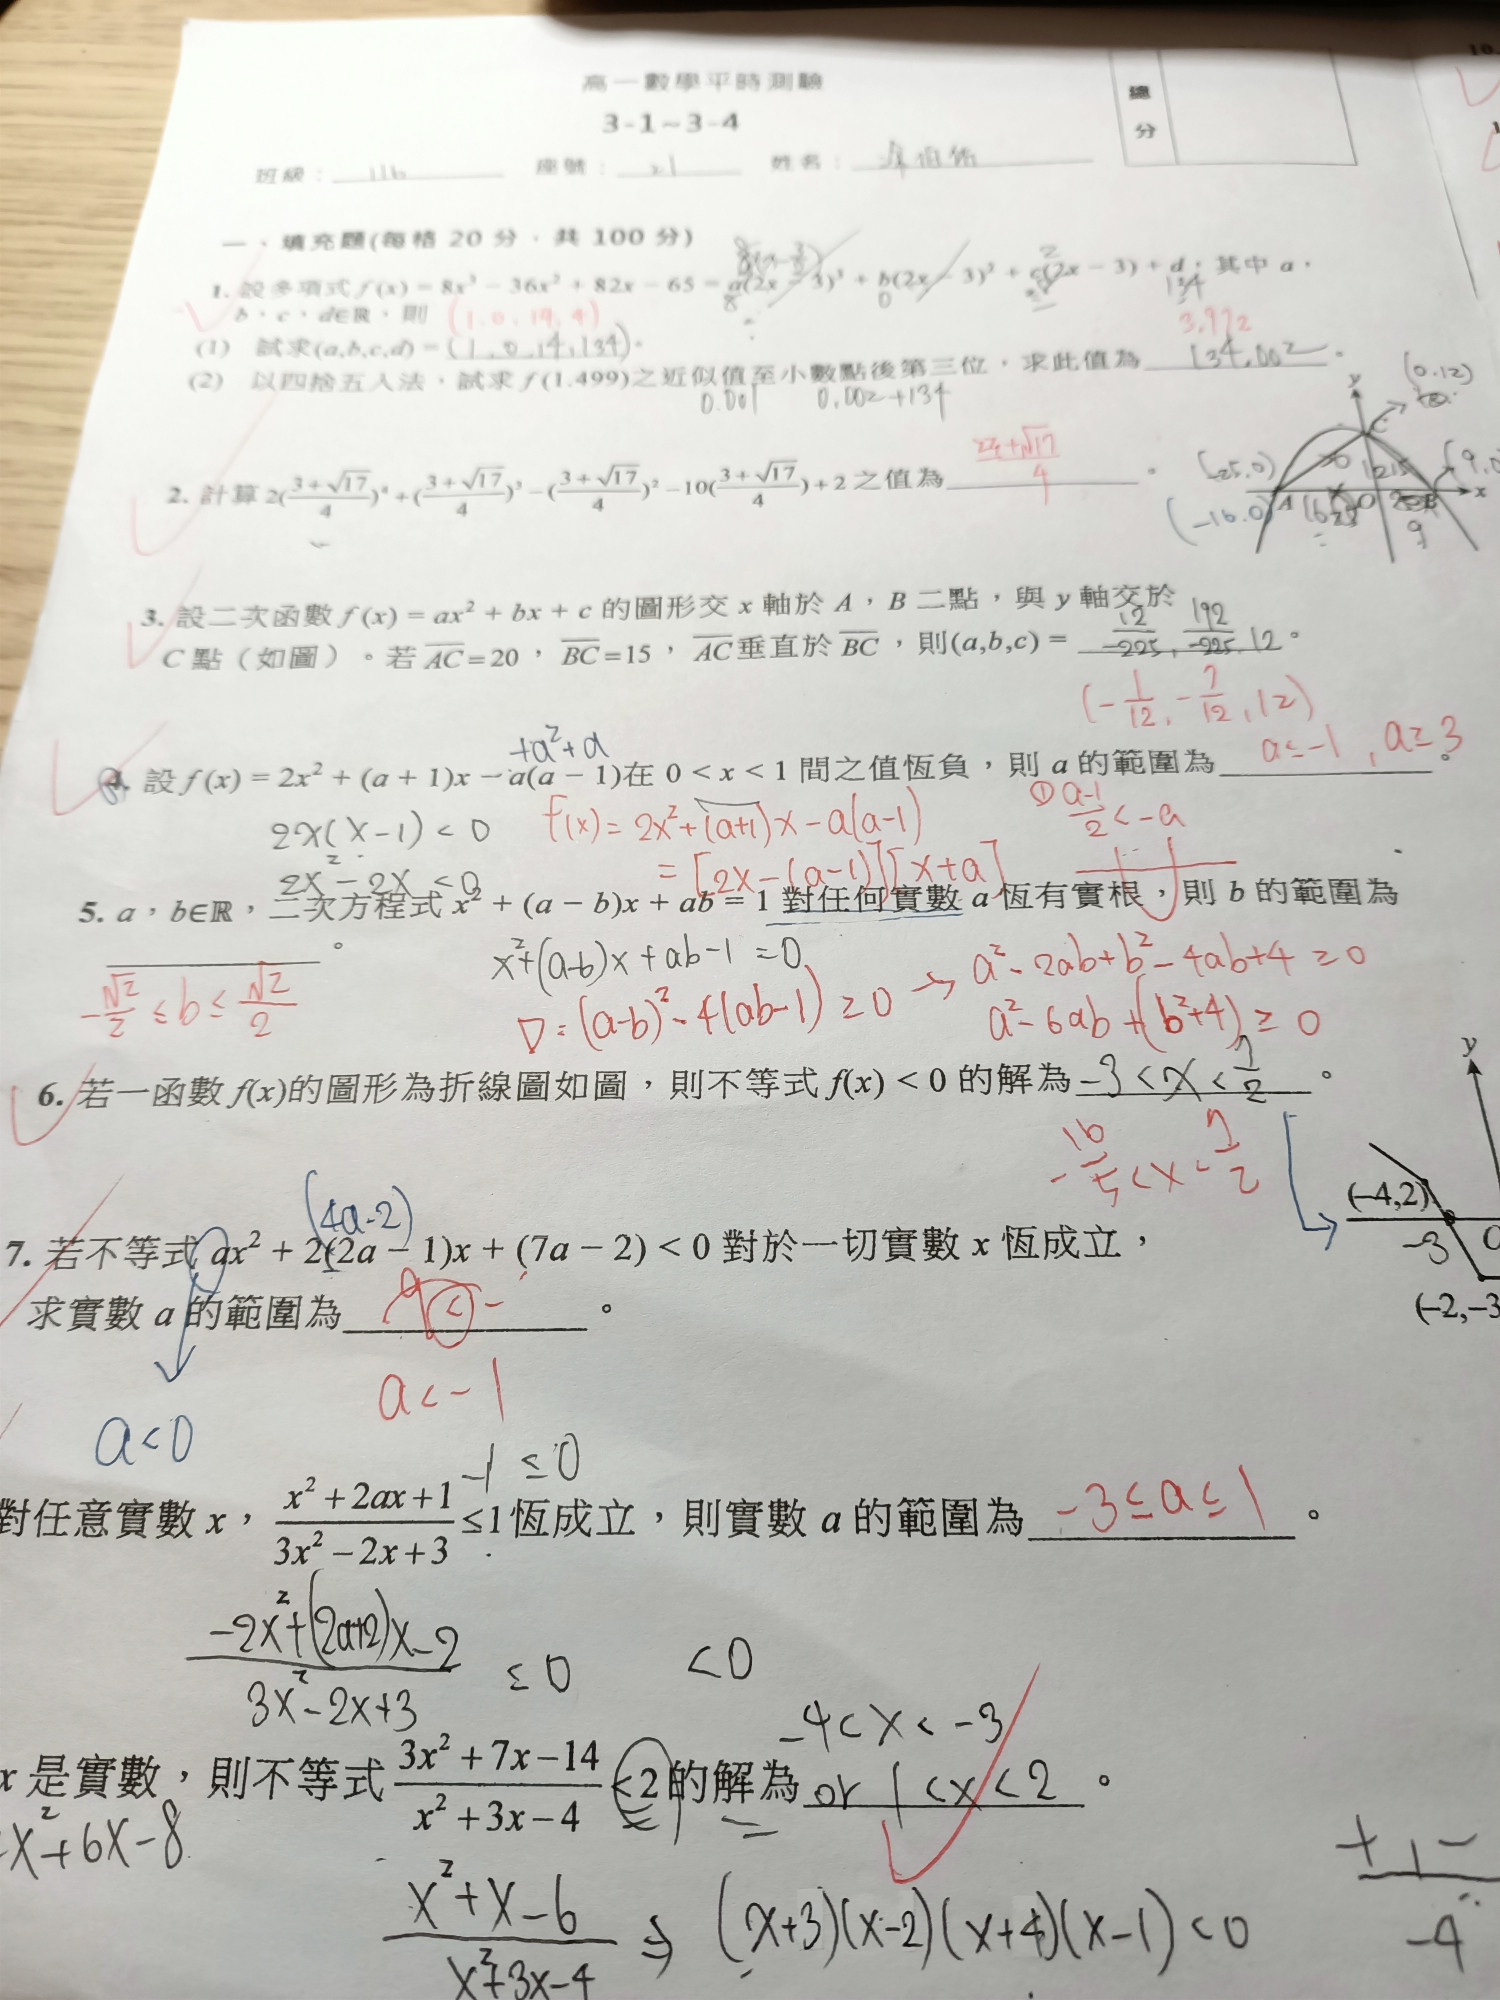 高一數學平時測驗
3-1~3-4
總分
班級：116 座號：21 姓名：
一、填充題(每格 20 分，共 100 分)
1. 設多項式 f(x) = 8x³ − 36x² + 82x − 65 = a(2x − 3)³ + b(2x − 3)² + c(2x − 3) + d，其中 a，
b，c，d∈ℝ，則 (1, 0, 14, 4)
(1) 試求(a,b,c,d) = (1, 0, 14, 134)。
3.972
(2) 以四捨五入法，試求 f(1.499)之近似值至小數點後第三位，求此值為 134.002。
0.001 0.002+134
2. 計算 2((3+√17)/4)⁴ + ((3+√17)/4)³ − ((3+√17)/4)² − 10((3+√17)/4) + 2 之值為
(0.12)
(-25,0)
(-16.0)
y C A O B x
3. 設二次函數 f(x) = ax² + bx + c 的圖形交 x 軸於 A，B 二點，與 y 軸交於
C 點（如圖）。若 AC=20，BC=15，AC垂直於 BC，則(a,b,c) = 12/-225, 192/-225, 12。
(-1/12, -7/12, 12)
+a²+a
4. 設 f(x) = 2x² + (a + 1)x − a(a − 1)在 0 < x < 1 間之值恆負，則 a 的範圍為 a≤-1, a≥3。
2x(x-1) < 0 f(x) = 2x²+(a+1)x-a(a-1) ① (a-1)/2 < -a
2x²-2x < 0 = [2x-(a-1)][x+a]
5. a，b∈ℝ，二次方程式 x² + (a − b)x + ab = 1 對任何實數 a 恆有實根，則 b 的範圍為
。
-√2/2 ≤ b ≤ √2/2
x²+(a-b)x+ab-1=0
▽=(a-b)²-4(ab-1)≥0 → a²-2ab+b²-4ab+4≥0
a²-6ab+(b²+4)≥0
6. 若一函數 f(x)的圖形為折線圖如圖，則不等式 f(x) < 0 的解為 -3<x<7/2。
-16/5<x<7/2
y
(−4,2)
-3 O
(−2,−3
(4a-2)
7. 若不等式 ax² + 2(2a − 1)x + (7a − 2) < 0 對於一切實數 x 恆成立，
求實數 a 的範圍為 a<-。
a<-1
a<0
-1 ≤0
對任意實數 x，(x²+2ax+1)/(3x²−2x+3) ≤1 恆成立，則實數 a 的範圍為 -3≤a≤1。
(-2x²+(2a+2)x-2)/(3x²-2x+3) ≤0 <0
-4<x<-3
x 是實數，則不等式 (3x²+7x−14)/(x²+3x−4) <2 的解為 or 1<x<2。
x²+6x-8
(x²+x-6)/(x²+3x-4) ⇒ (x+3)(x-2)(x+4)(x-1)<0
+ -
-4